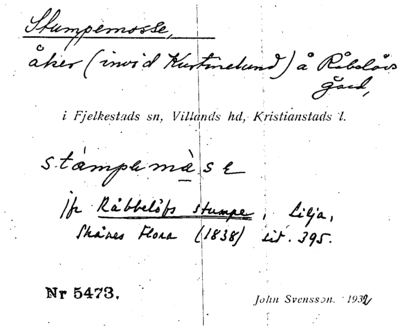 Stumpemosse,
åker (invid Kurtinelund) å Råbelövs
gård,
i Fjelkestads sn, Villands hd, Kristianstads l.
stàmpemàse
jfr Råbbelöfs stumpe, Lilja,
Skånes Flora (1838) sid. 395.
Nr 5473.
John Svensson. 1932